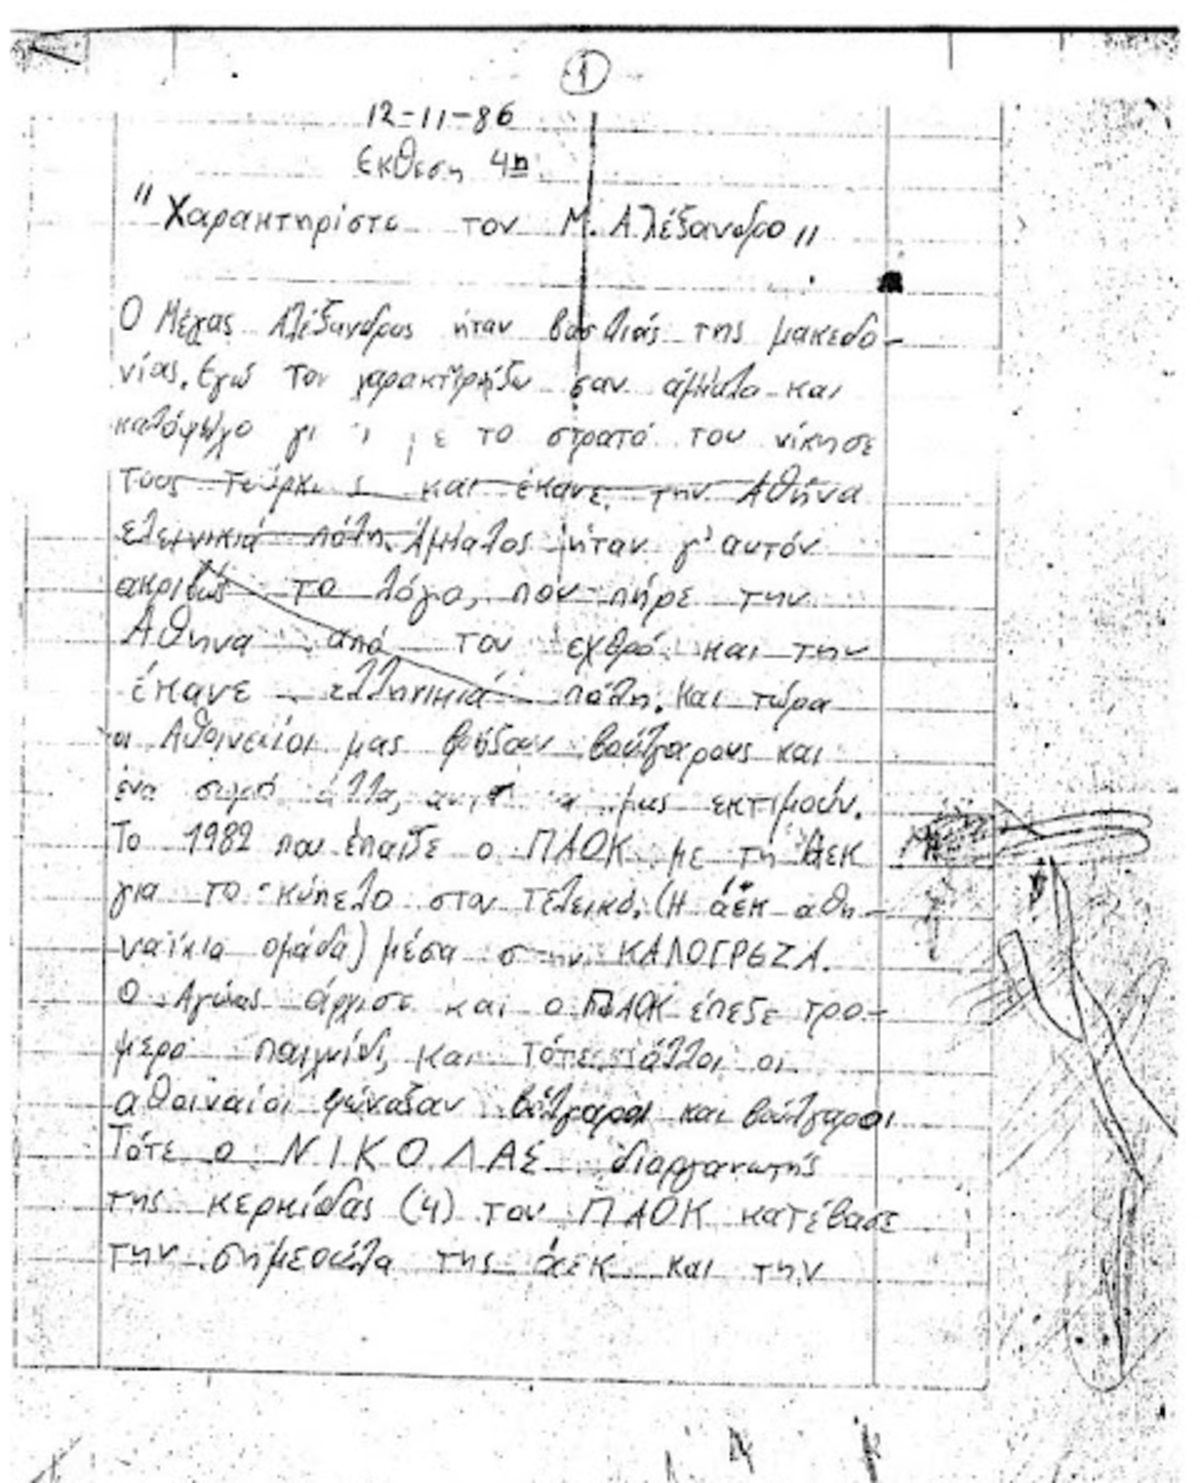 1
12-11-86
Εκθεση 4η
"Χαρακτηρίστε τον Μ. Αλέξανδρο"
Ο Μέγας Αλέξανδρος ήταν βασιλιάς της μακεδο-
νίας. Εγώ τον χαρακτηρίζω σαν άμπαλο και
το στρατό του νίκησε
τους και έκανε την Αθήνα
ελεινικιά πόλη. Άμπαλος ήταν γ' αυτόν
ακριβώς το λόγο, που πήρε την
Αθηνα από τον εχθρό και την
έκανε ελληνικιά πόλη. Και τώρα
οι μας βούλγαρους και
ένα άλλα, μας εκτιμούν.
Το 1982 που έπαιξε ο ΠΑΟΚ με τη ΆΕΚ
για το κύπελο στον τέλεικό. (Η άέκ αθη-
ναϊκια ομάδα) μέσα στην ΚΑΛΟΓΡΕΖΑ.
Ο Αγώνας άρχισε και ο ΠΑΟΚ έπεξε τρο-
μερό παιχνίδι, και τότε οι
αθοιναίοι φώναξαν βούλγαροι και βούλγαροι
Τότε ο ΝΙΚΟΛΑΣ διοργανωτής
της κερκίδας (4) του ΠΑΟΚ κατέβασε
την της άεκ και την